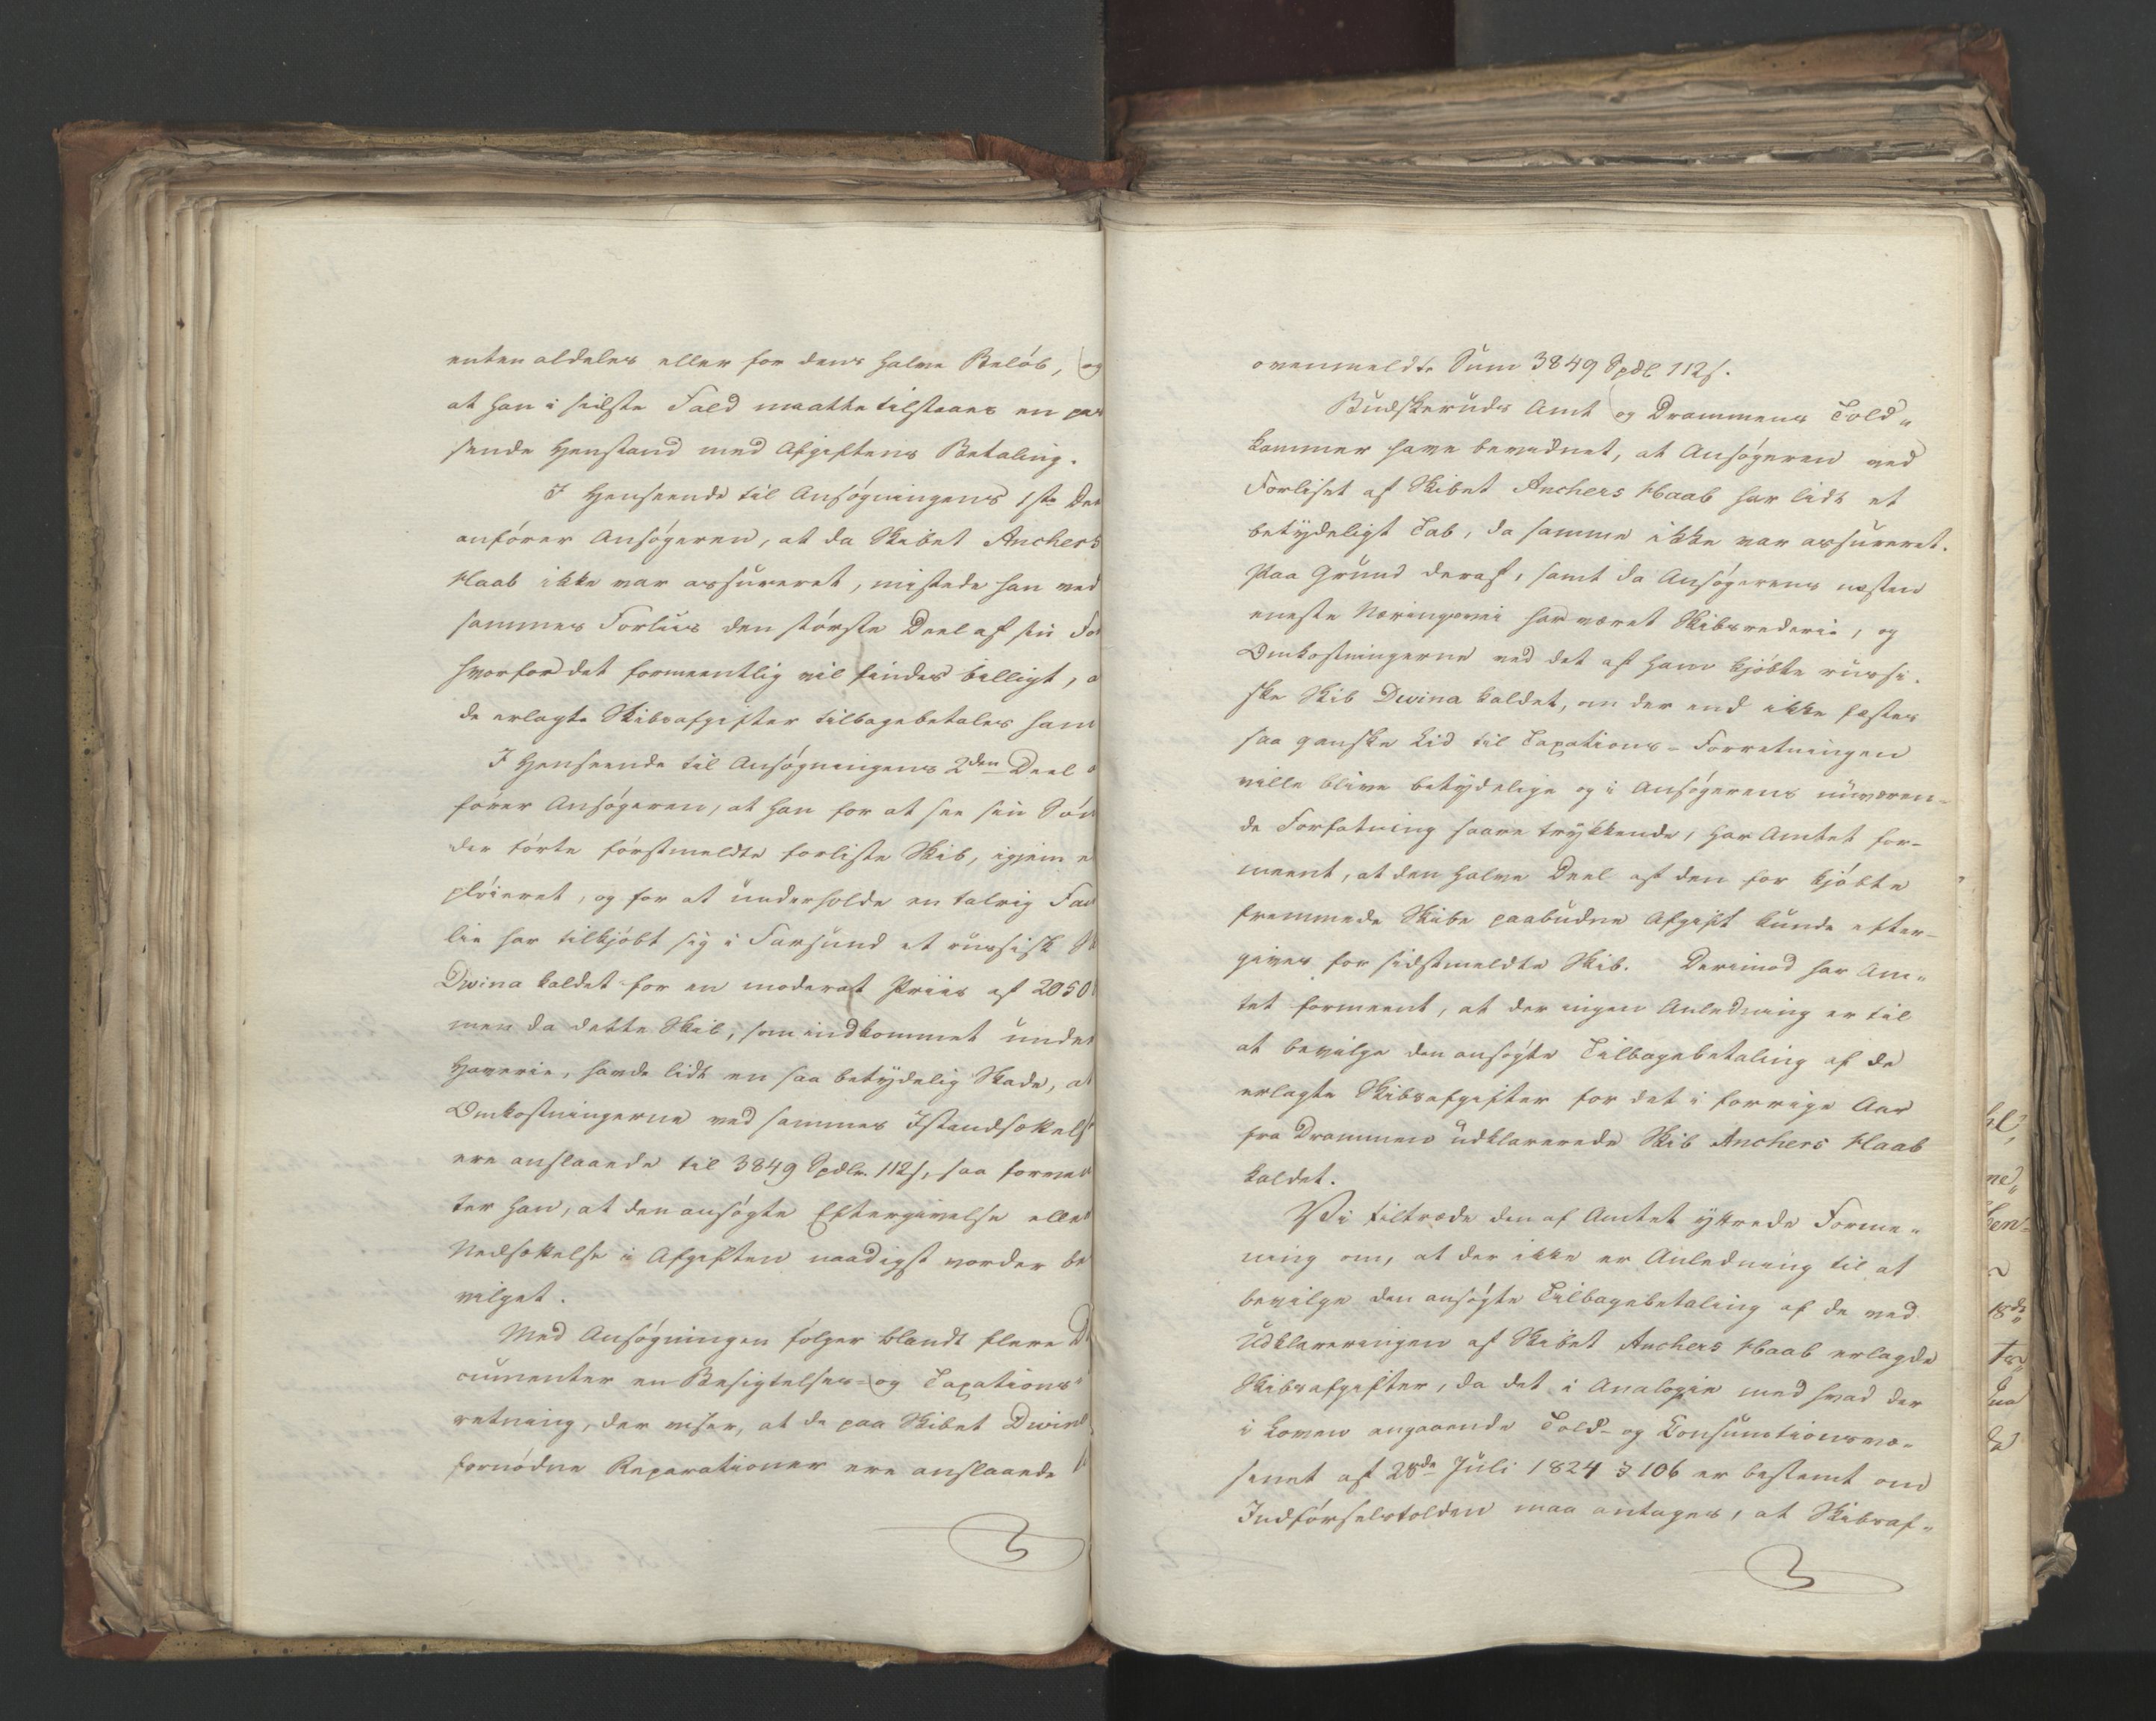 enten aldeles eller for dens halve Beløb, og
at han i sidste Fald maatte tilstaaes en pas
sende Henstand med Afgiftens Betaling.
I Henseende til Ansøgningens 1ste Dee
anfører Ansøgeren, at da Skibet Anchers
Haab ikke var assureret, mistede han ved
sammes Forliis den største Deel af sin Fo
hvorfor det formeentlig vil findes billigt, a
de erlagte Skibsafgifter tilbagebetales ham
I Henseende til Ansøgningens 2den Deel a
fører Ansøgeren, at han for at see sin Søn
der førte førstmeldte forliste Skib, igjen e
ploieret, og for at underholde en talrig Fam
lie har tilkjøbt sig i Farsund et russisk Sk
Dwina kaldet for en moderat Priis af 2050
men da dette Skib, som indkommet under
Haverie, havde lidt en saa betydelig Skade, at
Omkostningerne ved sammes Istandsættels
ere anslaaede til 3849 Spdlr 112 s, saa forven
ter han, at den ansøgte Eftergivelse eller
Nedsættelse i Afgiften naadigst vorder be
vilget.
Med Ansøgningen følger blandt flere D
ocumenter en Besigtelses- og Taxations-
retning, der viser, at de paa Skibet Dwina
fornødne Reparationer ere anslaaede
ovenmeldte Sum 3849 Spdl 112 s.
Budskeruds Amt og Drammens Told„
kammer have bevidnet, at Ansøgeren ved
Forliset af Skibet Anchers Haab har lidt et
betydeligt Tab, da samme ikke var assureret.
Paa Grund deraf, samt da Ansøgerens næsten
eneste Næringsvei har været Skibsrederie, og
Omkostningerne ved det af ham kjøbte russi-
ske Skib Dwina kaldet, om der end ikke fæstes
saa ganske Lid til Taxations-Forretningen
ville blive betydelige og i Ansøgerens nuværen-
de Forfatning saare trykkende, har Amtet for-
meent, at den halve Deel af den for kjøbte
fremmede Skibe paabudne Afgift kunde efter-
gives for sidstmeldte Skib. Derimod har Am„
tet formeent, at der ingen Anledning er til
at bevilge den ansøgte Tilbagebetaling af de
erlagte Skibsafgifter for det i forrige Aar
fra Drammen udklarerede Skib Anchers Haab
kaldet.
Vi tiltræde den af Amtet yttrede Forme„
ning om, at der ikke er Anledning til at
bevilge den ansøgte Tilbagebetaling af de ved
Udklareringen af Skibet Anchers Haab erlagde
Skibsafgifter, da det i Analogie med hvad der
i Loven angaaende Told- og Consumtionsvæ-
senet af 28de Juli 1824 § 106 er bestemt om
Indførselstolden maa antages, at Skibsaf„